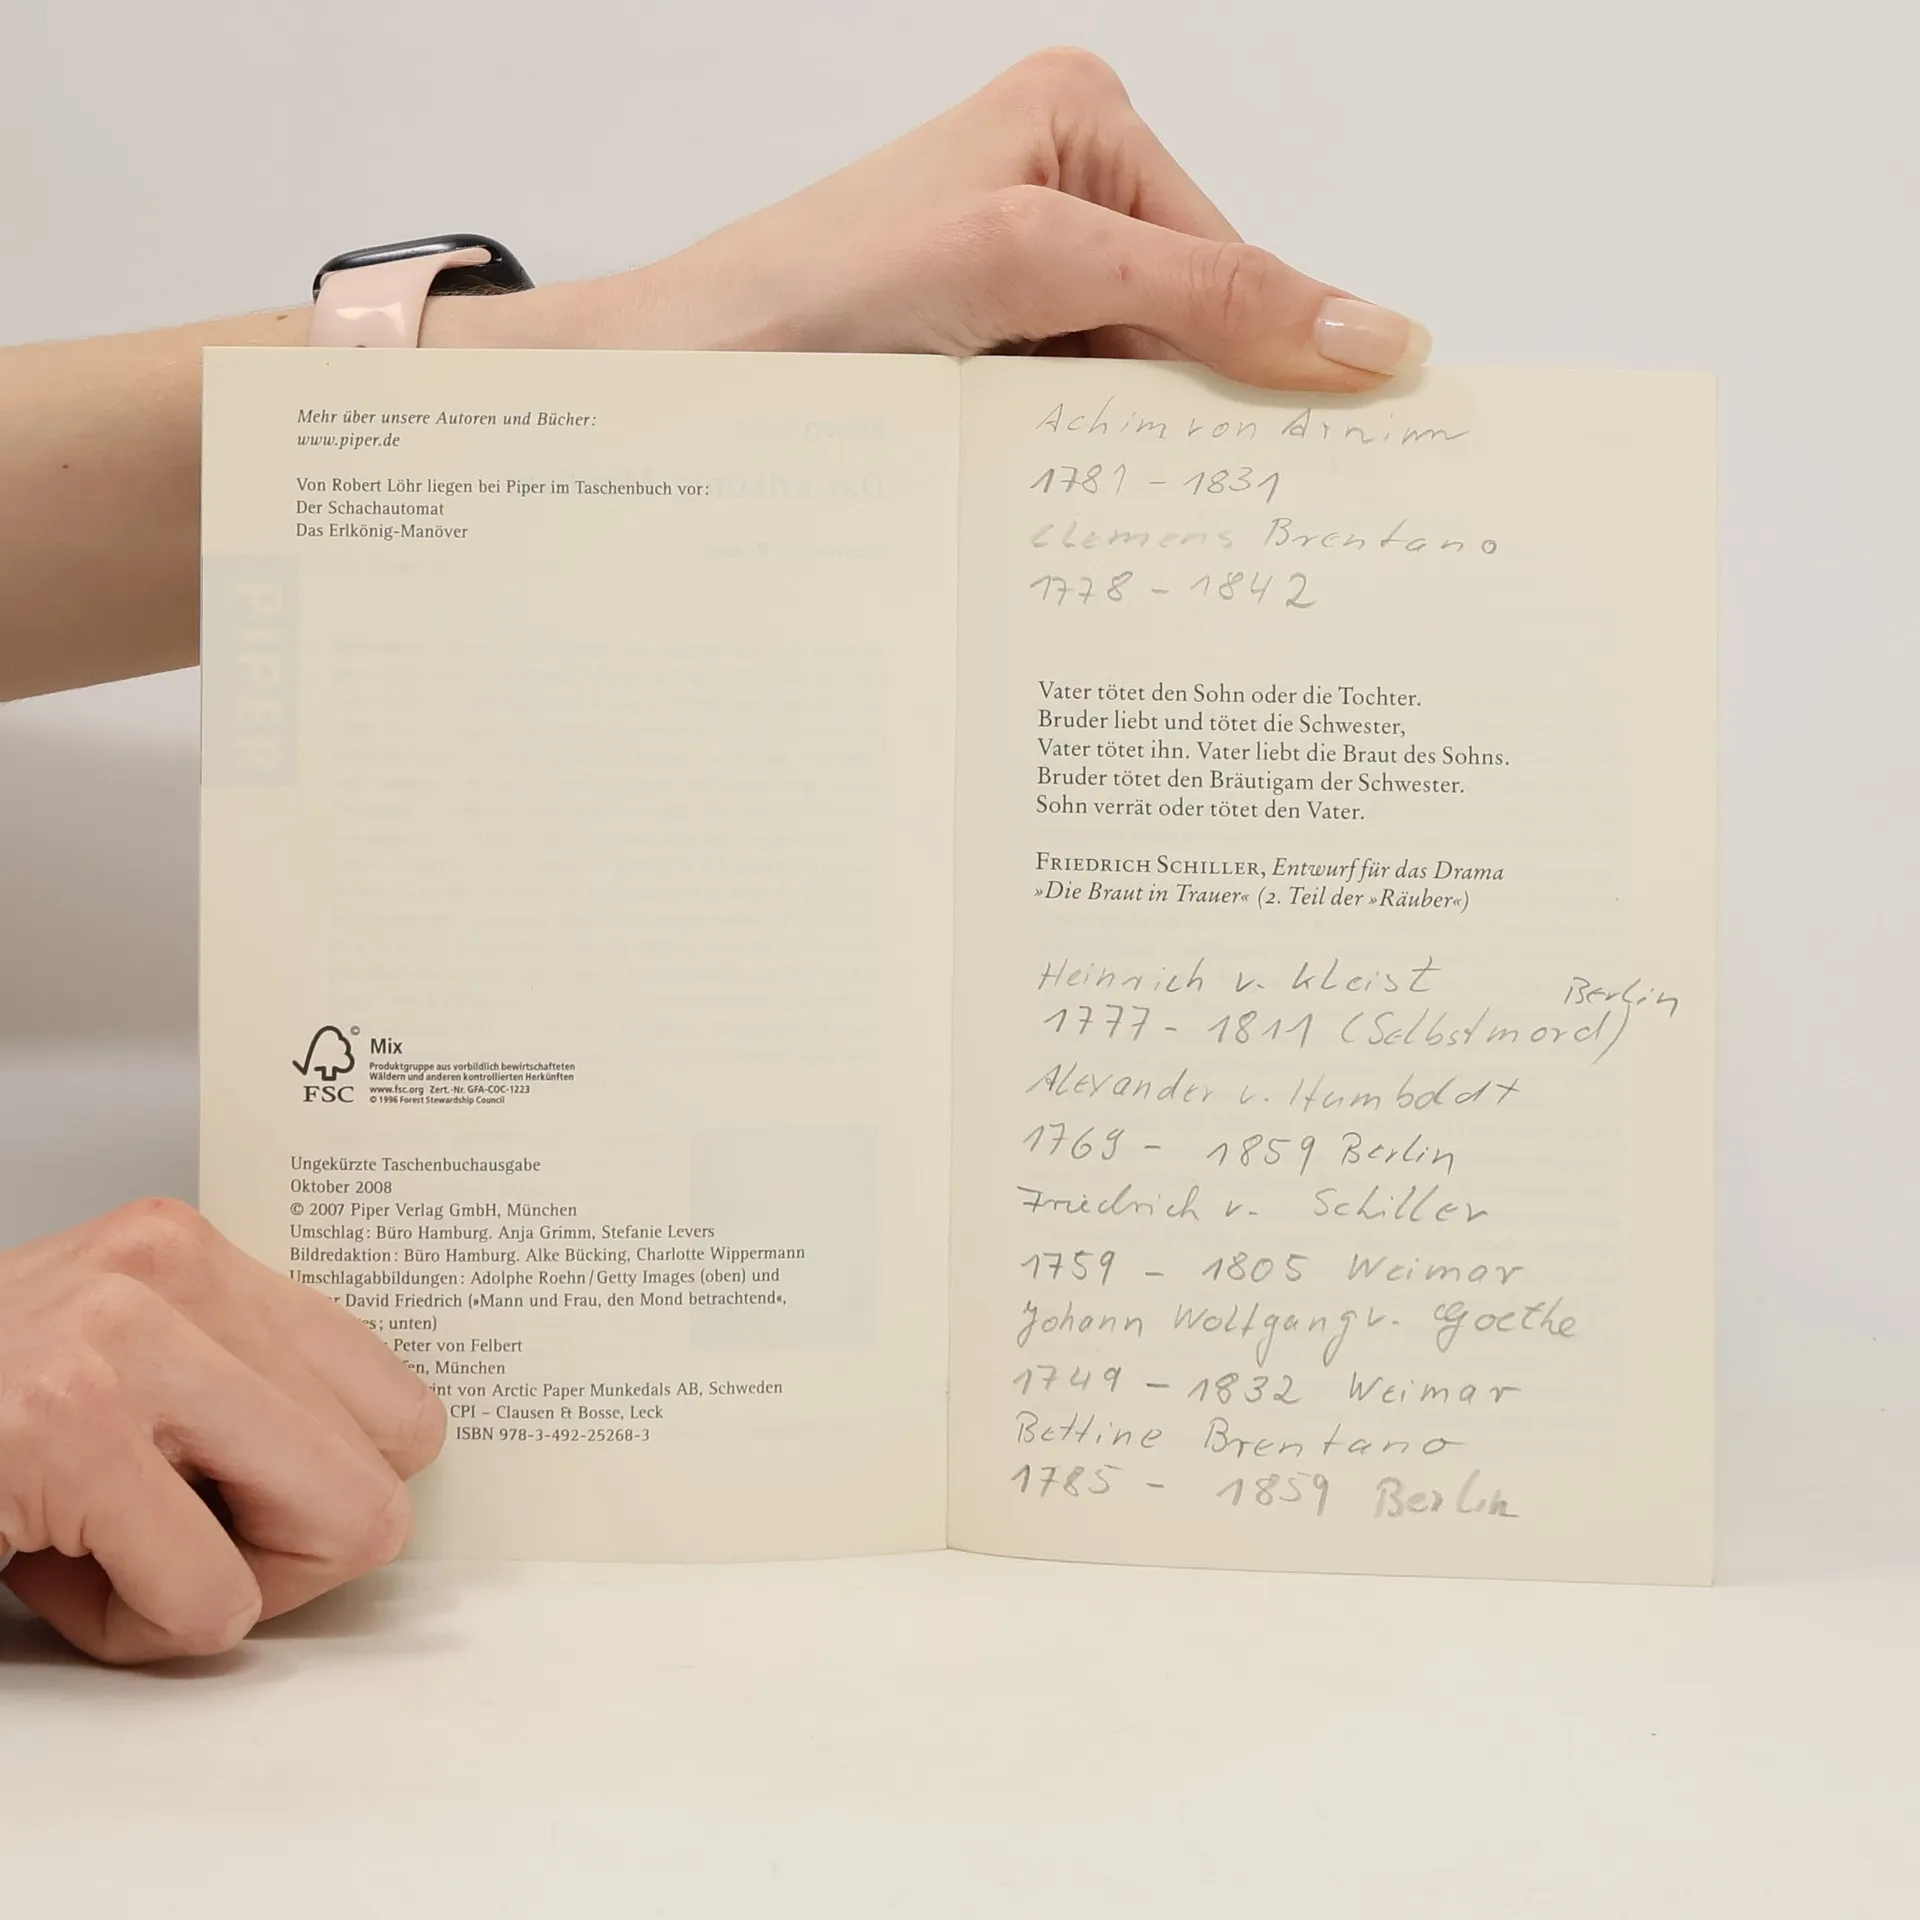 Mehr über unsere Autoren und Bücher:
www.piper.de
Von Robert Löhr liegen bei Piper im Taschenbuch vor:
Der Schachautomat
Das Erlkönig-Manöver
PIPER
©
FSC
Mix
Produktgruppe aus vorbildlich bewirtschafteten
Wäldern und anderen kontrollierten Herkünften
www.fsc.org Zert.-Nr. GFA-COC-1223
© 1996 Forest Stewardship Council
Ungekürzte Taschenbuchausgabe
Oktober 2008
© 2007 Piper Verlag GmbH, München
Umschlag: Büro Hamburg. Anja Grimm, Stefanie Levers
Bildredaktion: Büro Hamburg. Alke Bücking, Charlotte Wippermann
Umschlagabbildungen: Adolphe Roehn/Getty Images (oben) und
David Friedrich (»Mann und Frau, den Mond betrachtend«,
; unten)
Peter von Felbert
München
von Arctic Paper Munkedals AB, Schweden
CPI – Clausen & Bosse, Leck
ISBN 978-3-492-25268-3
Achim von Arnim
1781 - 1831
Clemens Brentano
1778 - 1842
Vater tötet den Sohn oder die Tochter.
Bruder liebt und tötet die Schwester,
Vater tötet ihn. Vater liebt die Braut des Sohns.
Bruder tötet den Bräutigam der Schwester.
Sohn verrät oder tötet den Vater.
FRIEDRICH SCHILLER, Entwurf für das Drama
»Die Braut in Trauer« (2. Teil der »Räuber«)
Heinrich v. Kleist
Berlin
1777 - 1811 (Selbstmord)
Alexander v. Humboldt
1769 - 1859 Berlin
Friedrich v. Schiller
1759 - 1805 Weimar
Johann Wolfgang v. Goethe
1749 - 1832 Weimar
Bettine Brentano
1785 - 1859 Berlin